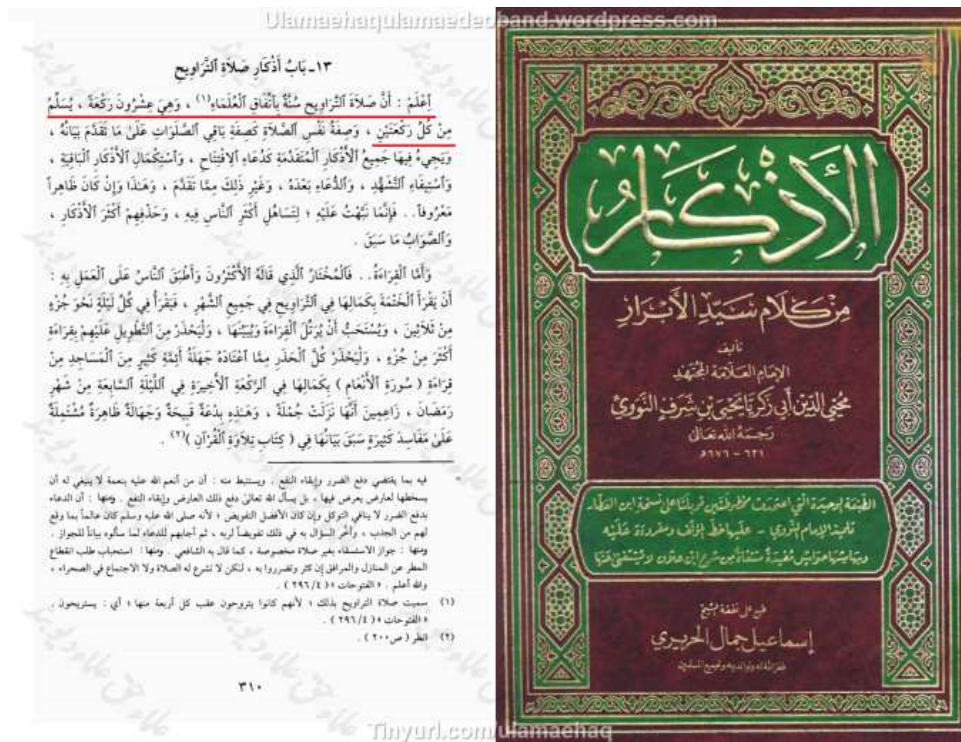 Ulamaehaqulamaedeoband.wordpress.com
١٣ـ بَابُ أَذْكَارِ صَلَاةِ ٱلتَّرَاوِيحِ
اِعْلَمْ : أَنَّ صَلَاةَ ٱلتَّرَاوِيحِ سُنَّةٌ بِٱتِّفَاقِ ٱلْعُلَمَاءِ(١) ، وَهِيَ عِشْرُونَ رَكْعَةً ، يُسَلِّمُ
مِنْ كُلِّ رَكْعَتَيْنِ ، وَصِفَةُ نَفْسِ ٱلصَّلَاةِ كَصِفَةِ بَاقِي ٱلصَّلَوَاتِ عَلَىٰ مَا تَقَدَّمَ بَيَانُهُ ،
وَيَجِيءُ فِيهَا جَمِيعُ ٱلْأَذْكَارِ ٱلْمُتَقَدِّمَةِ كَدُعَاءِ ٱلِافْتِتَاحِ ، وَٱسْتِكْمَالِ ٱلْأَذْكَارِ ٱلْبَاقِيَةِ ،
وَٱسْتِيفَاءِ ٱلتَّشَهُّدِ ، وَٱلدُّعَاءِ بَعْدَهُ ، وَغَيْرِ ذَلِكَ مِمَّا تَقَدَّمَ ، وَهَـٰذَا وَإِنْ كَانَ ظَاهِراً
مَعْرُوفاً . . فَإِنَّمَا نَبَّهْتُ عَلَيْهِ ؛ لِتَسَاهُلِ أَكْثَرِ ٱلنَّاسِ فِيهِ ، وَحَذْفِهِمْ أَكْثَرَ ٱلْأَذْكَارِ ،
وَٱلصَّوَابُ مَا سَبَقَ .
وَأَمَّا ٱلْقِرَاءَةُ . . فَٱلْمُخْتَارُ ٱلَّذِي قَالَهُ ٱلْأَكْثَرُونَ وَأَطْبَقَ ٱلنَّاسُ عَلَى ٱلْعَمَلِ بِهِ :
أَنْ يَقْرَأَ ٱلْخَتْمَةَ بِكَمَالِهَا فِي ٱلتَّرَاوِيحِ فِي جَمِيعِ ٱلشَّهْرِ ، فَيَقْرَأُ فِي كُلِّ لَيْلَةٍ نَحْوَ جُزْءٍ
مِنْ ثَلَاثِينَ ، وَيُسْتَحَبُّ أَنْ يُرَتِّلَ ٱلْقِرَاءَةَ وَيُبَيِّنَهَا ، وَلْيَحْذَرْ مِنَ ٱلتَّطْوِيلِ عَلَيْهِمْ بِقِرَاءَةِ
أَكْثَرَ مِنْ جُزْءٍ ، وَلْيَحْذَرْ كُلَّ ٱلْحَذَرِ مِمَّا ٱعْتَادَهُ جَهَلَةُ أَئِمَّةِ كَثِيرٍ مِنَ ٱلْمَسَاجِدِ مِنْ
قِرَاءَةِ ( سُورَةِ ٱلْأَنْعَامِ ) بِكَمَالِهَا فِي ٱلرَّكْعَةِ ٱلْأَخِيرَةِ فِي ٱللَّيْلَةِ ٱلسَّابِعَةِ مِنْ شَهْرِ
رَمَضَانَ ، زَاعِمِينَ أَنَّهَا نَزَلَتْ جُمْلَةً ، وَهَـٰذِهِ بِدْعَةٌ قَبِيحَةٌ وَجَهَالَةٌ ظَاهِرَةٌ مُشْتَمِلَةٌ
عَلَىٰ مَفَاسِدَ كَثِيرَةٍ سَبَقَ بَيَانُهَا فِي ( كِتَابِ تِلَاوَةِ ٱلْقُرْآنِ )(٢) .
فيه بما يقتضي دفع الضرر وإبقاء النفع . ويستنبط منه : أن من أنعم الله عليه بنعمة لا ينبغي له أن
يسخطها لعارض يعرض فيها ، بل يسأل الله تعالىٰ دفع ذلك العارض وإبقاء النفع . ومنها : أن الدعاء
بدفع الضرر لا ينافي التوكل وإن كان الأفضل التفويض ؛ لأنه صلى الله عليه وسلم كان عالماً بما وقع
لهم من الجدب ، وأخر السؤال به في ذلك تفويضاً لربه ، ثم أجابهم للدعاء لما سألوه بياناً للجواز .
ومنها : جواز الاستسقاء بغير صلاة مخصوصة ، كما قال به الشافعي . ومنها : استحباب طلب انقطاع
المطر عن المنازل والمرافق إن كثر وتضرروا به ، لـٰكن لا تشرع له الصلاة ولا الاجتماع في الصحراء ،
والله أعلم . « الفتوحات » ( ٤/ ٢٩٦ ) .
(١) سميت صلاة التراويح بذلك ؛ لأنهم كانوا يتروحون عقب كل أربعة منها ؛ أي : يستريحون .
« الفتوحات » ( ٤/ ٢٩٦ ) .
(٢) انظر ( ص ٢٠٠ ) .
٣١٠
الأذكار
من كلام سيد الأبرار
تأليف
الإمام العلامة المجتهد
محيي الدين أبي زكريا يحيى بن شرف النووي
رحمه الله تعالى
٦٣١ - ٦٧٦هـ
الطبعة الوحيدة التي اعتمدت مخطوطتين قوبلتا على نسخة ابن العطار
تلميذ الإمام النووي - عليها خط المؤلف ومقروءة عليه
وبهامشها حواش مفيدة منتقاة من شرح ابن علان لا يستغنى عنها
طبع على نفقة الشيخ
إسماعيل جمال الحريري
غفر الله له ولوالديه ولجميع المسلمين
Tinyurl.com/ulamaehaq